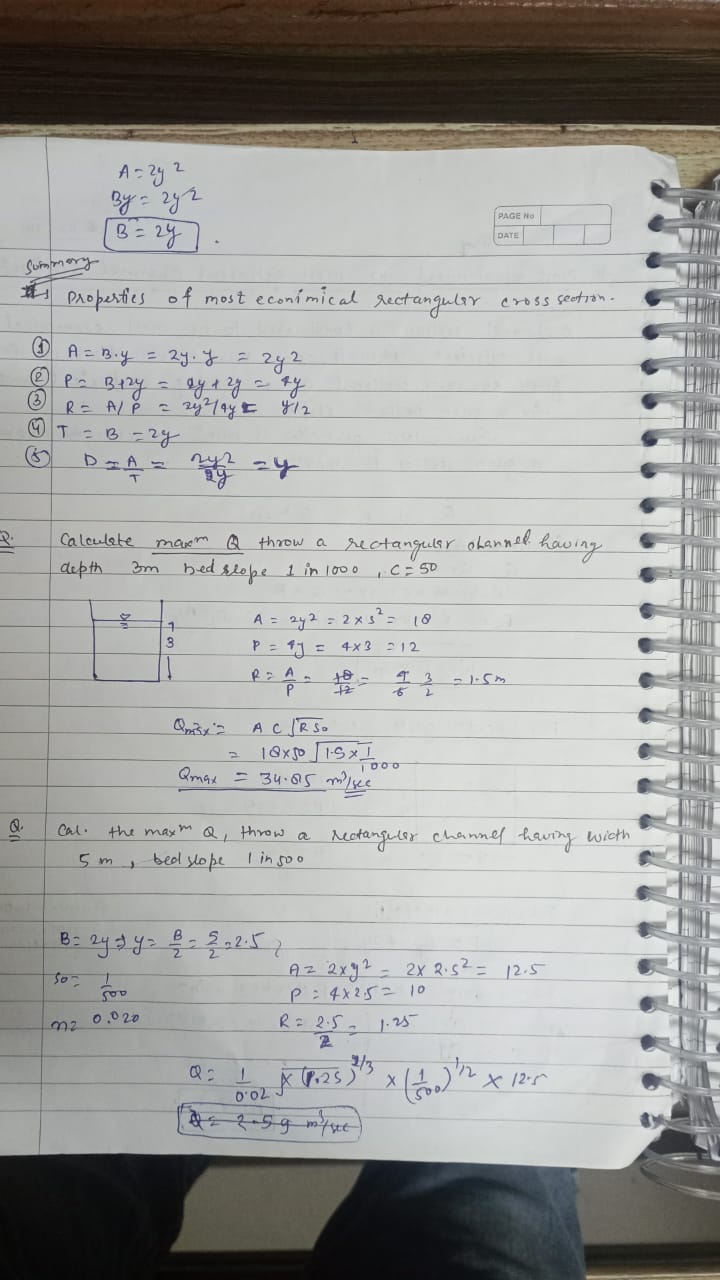 A = 2y²
By = 2y²
B = 2y
PAGE No
DATE
Summary
Properties of most econimical rectangular cross section.
① A = B.y = 2y.y = 2y²
② P = B+2y = 2y+2y = 4y
③ R = A/P = 2y²/4y = y/2
④ T = B = 2y
⑤ D = A/T = 2y²/2y = y
Q. Calculate maxm Q throw a rectangular channel having
depth 3m bed slope 1 in 1000, C = 50
A = 2y² = 2×3² = 18
3
P = 4y = 4×3 = 12
R = A/P = 18/12 = 3/2 = 1.5m
Qmax = A C √RSo
= 18×50 √1.5×1/1000
Qmax = 34.85 m³/sec
Q. Cal. the maxm Q, throw a rectangular channel having width
5 m, bed slope 1 in 500
B = 2y ⇒ y = B/2 = 5/2 = 2.5
A = 2×y² = 2×2.5² = 12.5
So = 1/500
P = 4×2.5 = 10
n = 0.020
R = 2.5/2 = 1.25
Q = 1/0.02 × (1.25)^2/3 × (1/500)^1/2 × 12.5
Q = 2.59 m³/sec